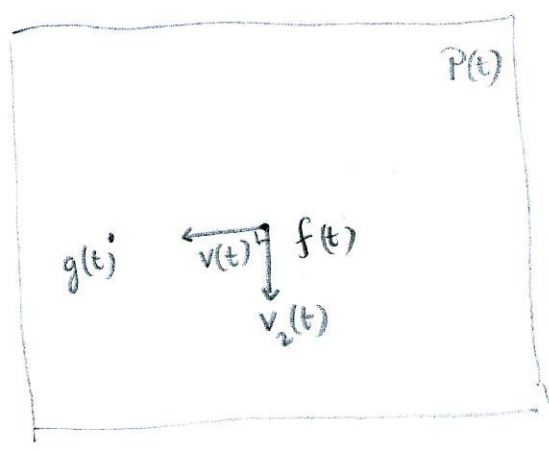 P(t)
g(t) v(t) f(t)
v₂(t)